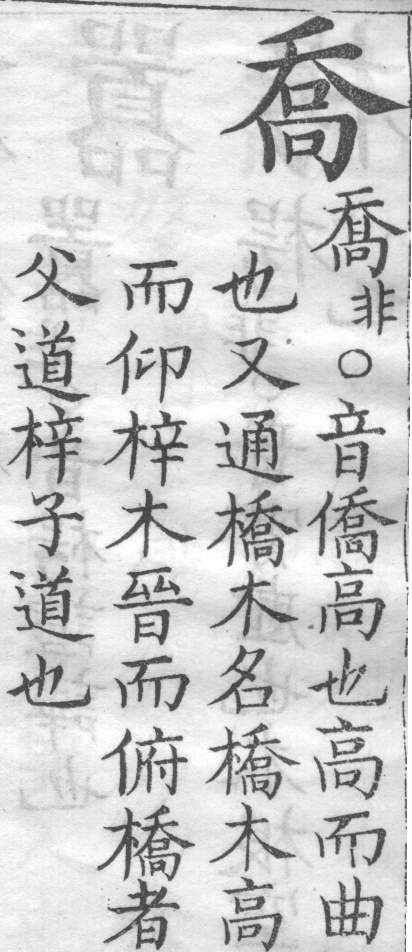 喬
𠷎非○音僑高也高而曲
也又通橋木名橋木高
而仰梓木晉而俯橋者
父道梓子道也